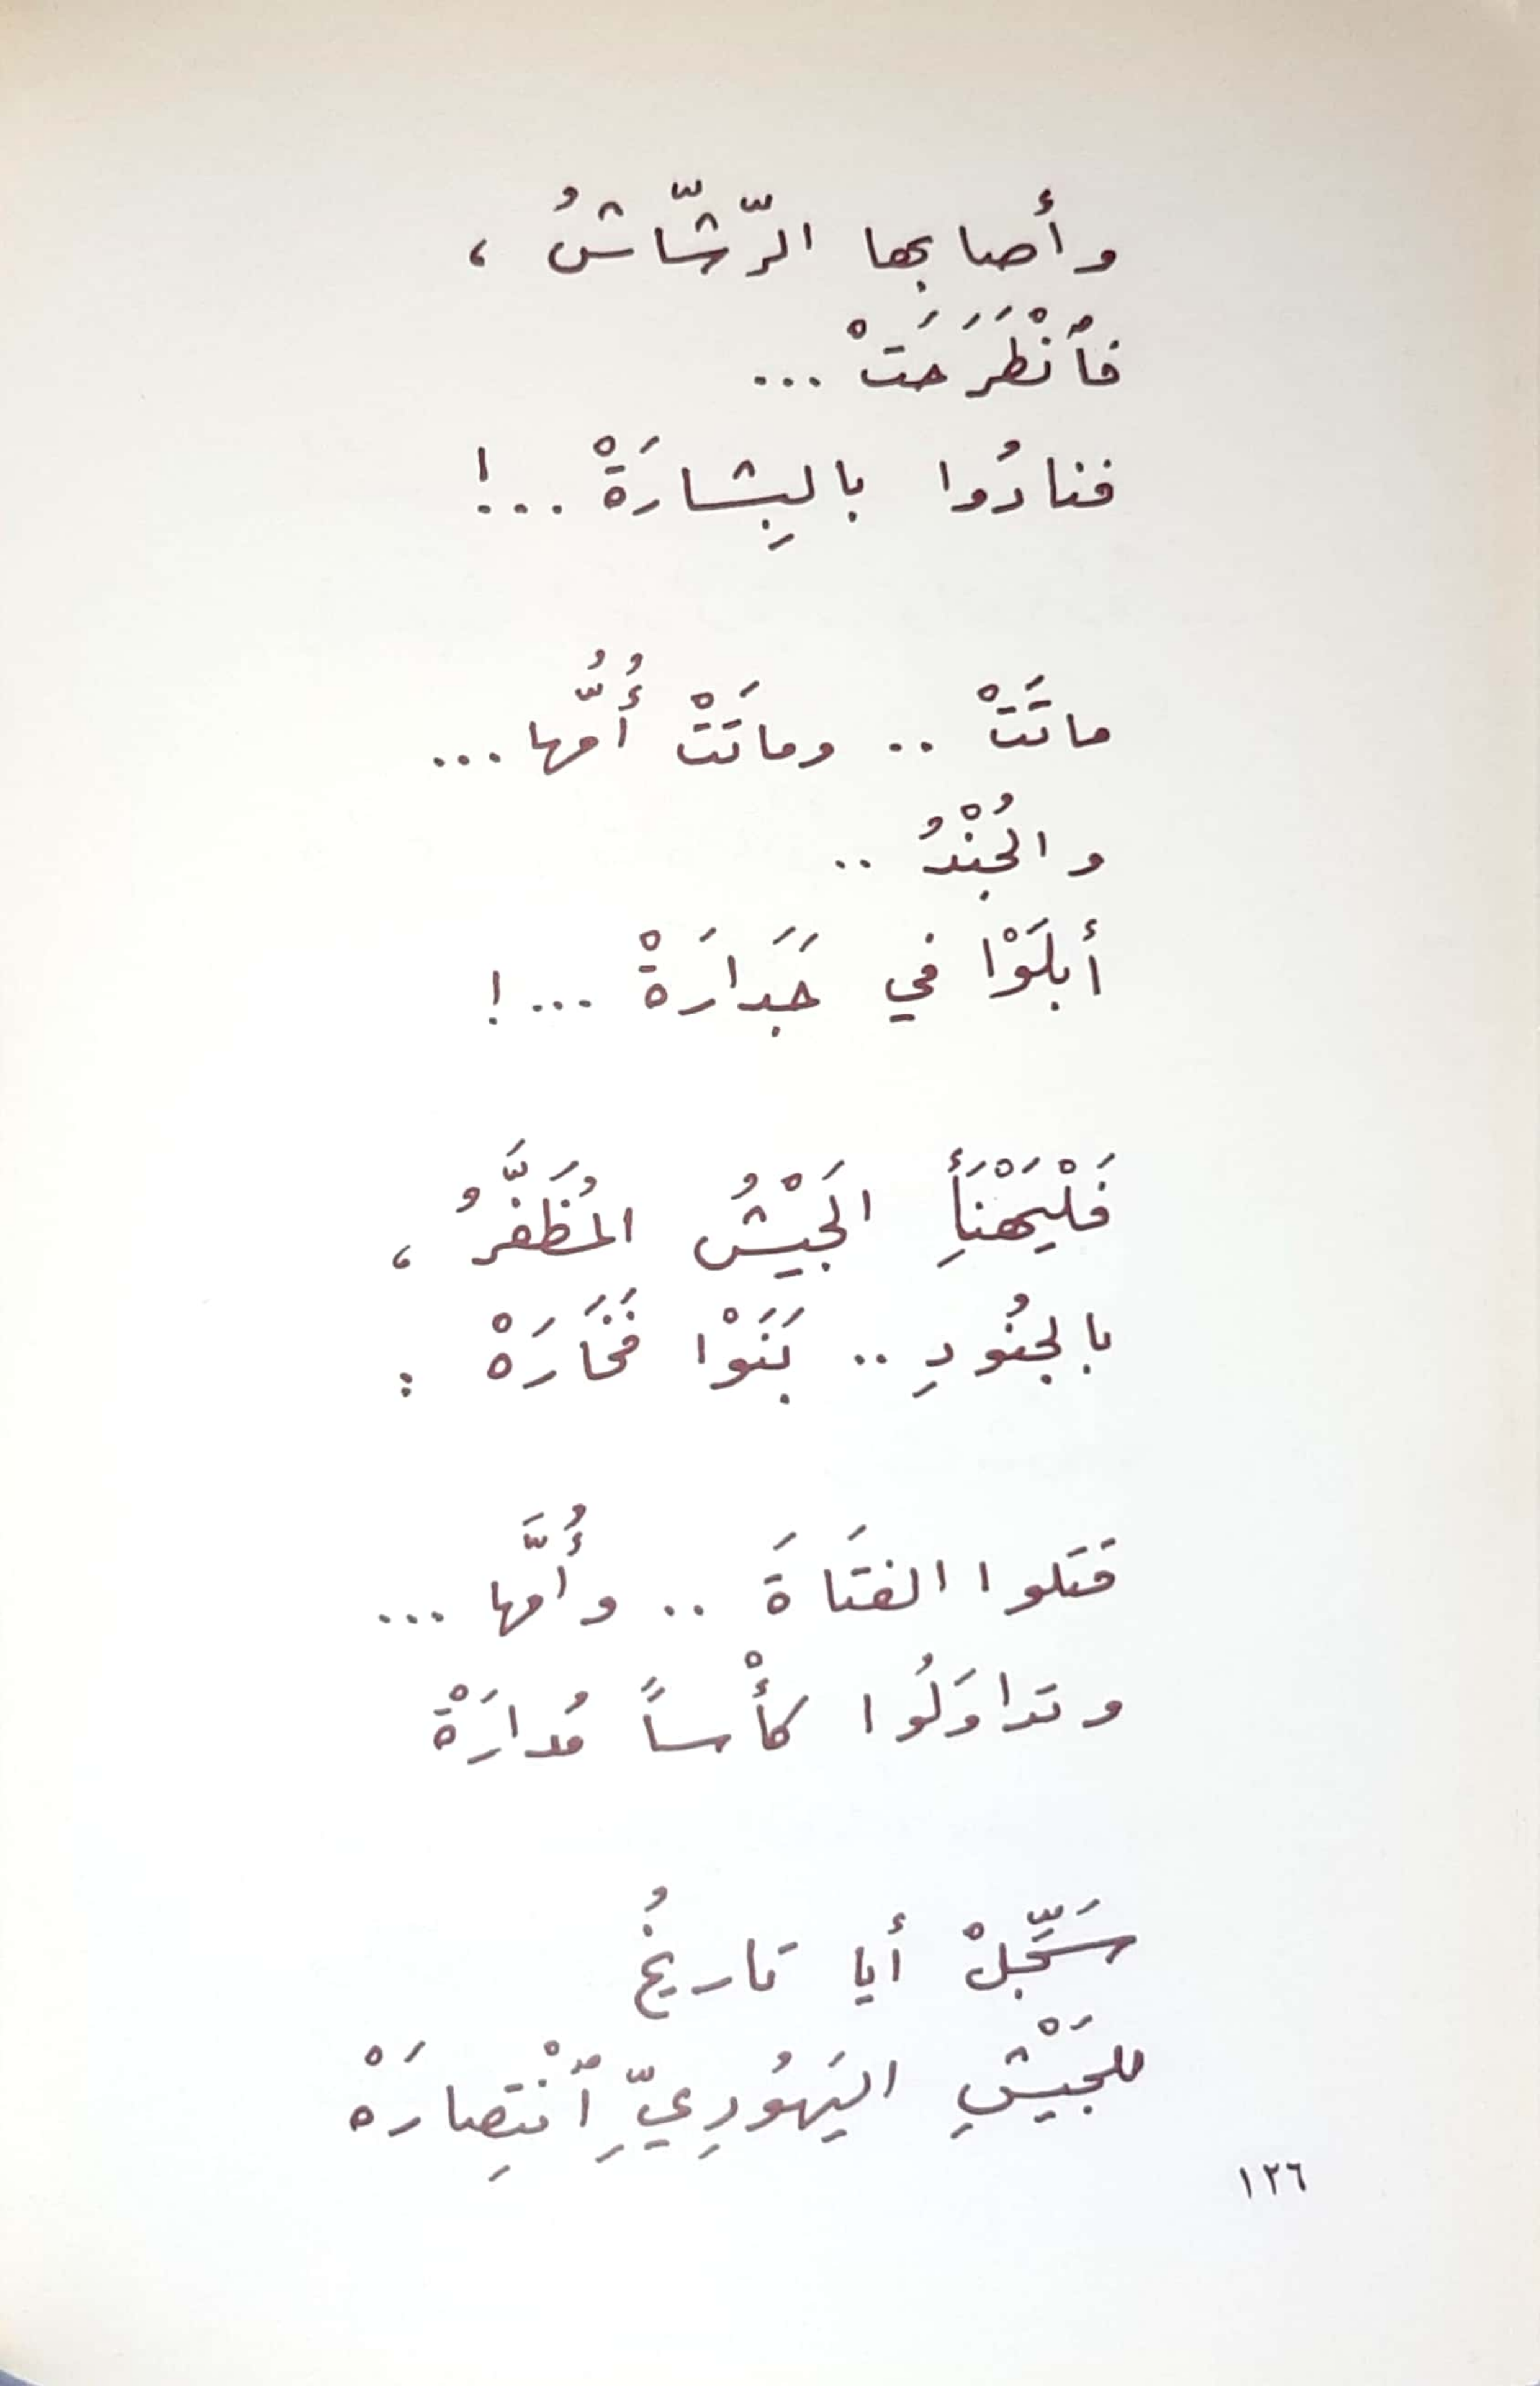 وأصابها الرّشّاشُ ،
فٱنْطَرَحَتْ ...
فنادُوا بالبِشارَةْ ...!
ماتَتْ .. وماتَتْ أُمُّها ...
والجُنْدُ ..
أبلَوْا في جَدارَةْ ...!
فَلْيَهْنَأَِ الجَيْشُ المُظَفَّرُ ،
بالجنُودِ .. بَنَوْا فَخَارَهْ :
قَتَلوا الفتَاةَ .. وأُمَّها ...
وتداوَلُوا كأْساً مُدارَةْ
سَجِّلْ أيا تاريخُ
للجَيْشِ اليَهُودِيِّ ٱنْتِصارَهْ
١٢٦